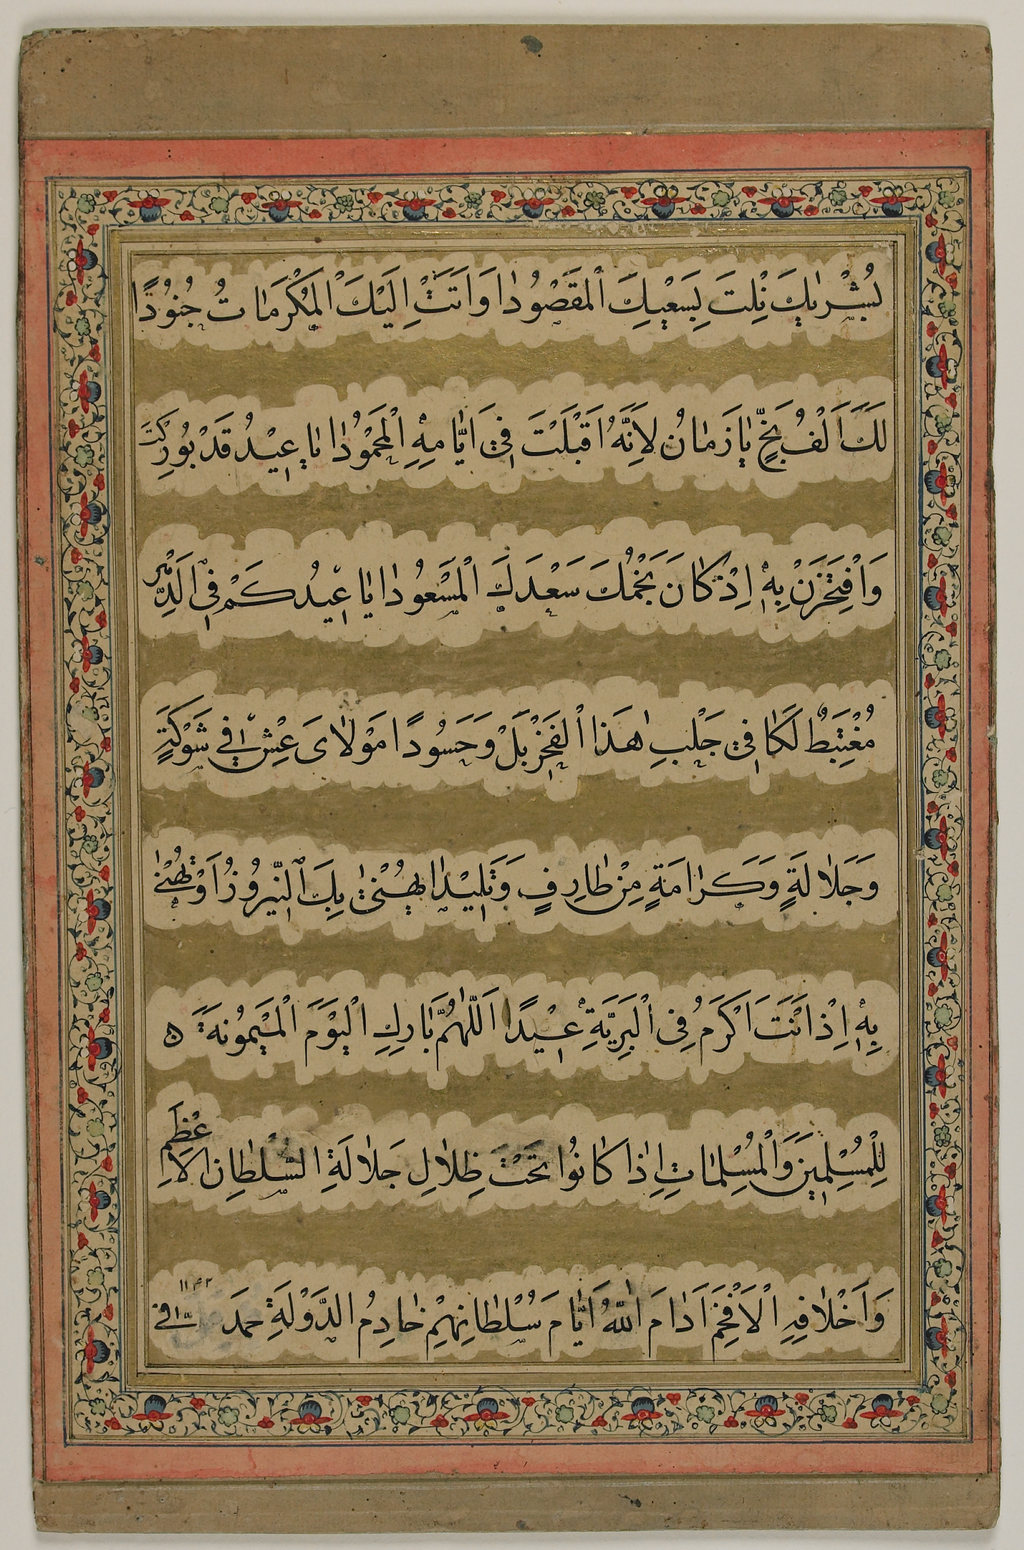 بُشْرٰیكَ نِلْتَ بِسَعْیِكَ الْمَقْصُودٰا وَاَتَتْ اِلَیْكَ الْمَكْرَمٰاتُ جُنُودًا
لَكَ اَلْفُ بَخٍّ یٰا زَمٰانُ لِاَنَّهُ اَقْبَلْتَ فِی اَیّٰامِهِ الْمَحْمُودٰا یٰا عِیْدُ قَدْ بُورِكْتَ
وَافْتَخِرَنْ بِهِ اِذْ كٰانَ نَجْمُكَ سَعْدَكَ الْمَسْعُودٰا یٰا عِیْدُكَمْ فِی الدَّهْرِ
مُغْتَبِطٌ لَكٰا فِی جَلْبِ هٰذَا الْفَخْرِ بَلْ وَحَسُودًا مَوْلٰایَ عِشْ فِی شَوْكَةٍ
وَجَلٰالَةٍ وَكَرٰامَةٍ مِنْ طٰارِفٍ وَتَلِیْدٰا یُهَنّیٰ بِكَ النَّیْرُوزُ اَوْ تُهَنّیٰ
بِهِ اِذْ اَنْتَ اَكْرَمُ فِی الْبَرِیَّةِ عِیْدًا اَللّٰهُمَّ بٰارِكِ الْیَوْمَ الْمَیْمُونَةَ ۵
لِلْمُسْلِمِینَ وَالْمُسْلِمٰاتِ اِذٰا كٰانُوا تَحْتَ ظِلٰالِ جَلٰالَةِ السُّلْطٰانِ الْاَعْظَمِ
وَاَخْلٰافِهِ الْاَفْخَمِ اَدٰامَ اللّٰهُ اَیّٰامَ سُلْطٰانِهِمْ خٰادِمُ الدَّوْلَةِ